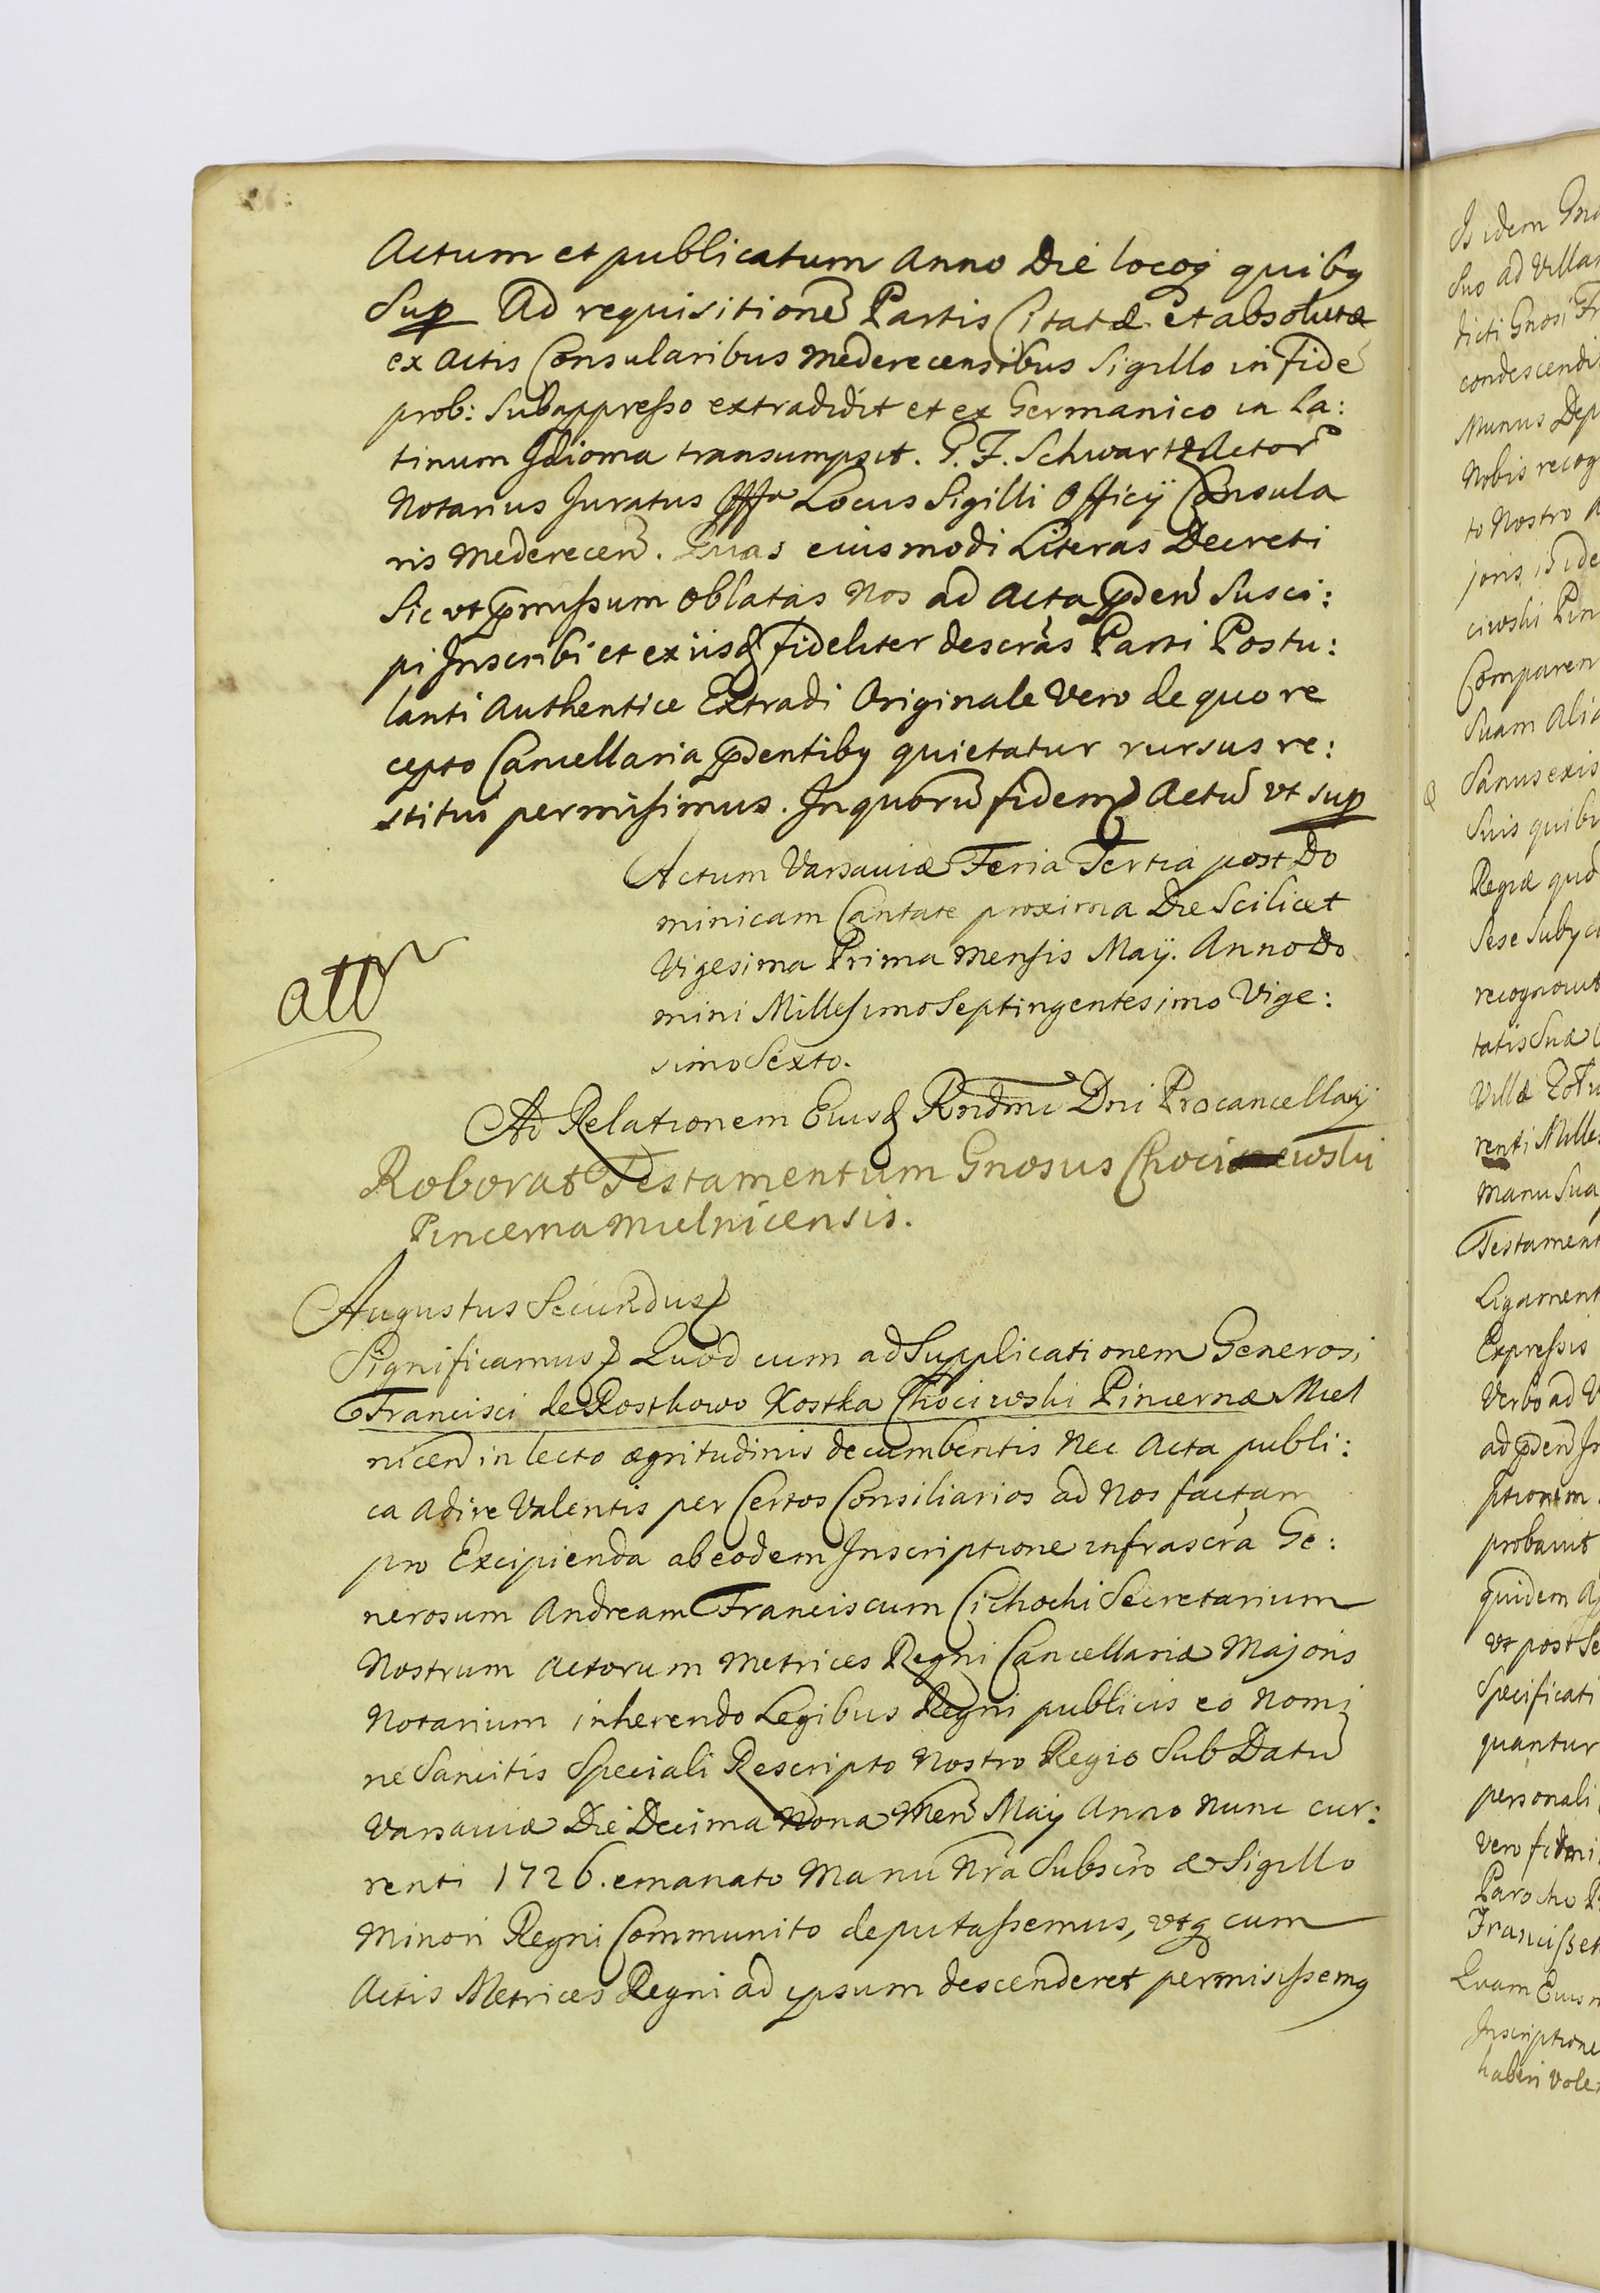 Actum et publicatum Anno Die locoq quibg
Sup Ad requisitione Partis Citatæ et absolutæ
ex Actis Consularibus Mederecensibus Sigillo in fide
prob: Subappresso extradidit et ex Germanico in La:
tinum Idioma transumpsit. G. F. Schwartz Actor
Notarius Juratus Locus Sigilli Officij Consula
ris Mederecen. Quas eiusmodi Literas Decreti
Sic ut pmissum oblatas Nos ad Acta pden Susci:
pi Inscribi et ex iisq fideliter descras Parti Postu:
lanti Authentice Extradi Originale Vero de quo re
cepto Cancellaria pdentibg quietatur rursus re:
stitui permisimus. In quoru fidem Actu ut sup
Actum Varsaviæ Feria Tertia post Do
minicam Cantate proxima Die Scilicet
Vigesima Prima Mensis Maij. Anno Do
mini Millesimo Septingentesimo Vige:
simo Sexto.
att
Ad Relationem Eiusq Rndmi Dni Procancellarij
Roborat Testamentum Gnosus Chociewski
Pincerna Mielnicensis.
Augustus Secundus
Significamus Quod cum ad Supplicationem Generosi
Francisci de Rostkowo Kostka Chociwski Pincernæ Miel
nicen in lecto ægritudinis decumbentis Nec Acta publi:
ca Adire Valentis per Certos Consiliarios ad Nos factam
pro Excipienda ab eodem Inscriptione infrascra Ge:
nerosum Andream Franciscum Cichocki Secretarium
Nostrum Actorum Metrices Regni Cancellariæ Majoris
Notarium inherendo Legibus Regni publicis eo Nomi
ne Sancitis Speciali Rescripto Nostro Regio Sub Datu
Varsaviæ Die Decima Nona Men Maij Anno Nunc cur:
renti 1726. emanato Manu Nra Subscro et Sigillo
Minori Regni Communito deputassemus, utq cum
Actis Metrices Regni ad ipsum descenderet permisissemg
Is idem
Suo ad Villa
dicti Gnosi Fr
condescendi
Munus Dep
Nobis recog
to Nostro
joris, Iside
ciwski Pin
Comparen
Suam Ali
Sanus exis
Suis quib
Regiæ quo
Sese Suby
recognovit
tatis Suæ
Villæ
renti Mille
manu Sua
Testament
Ligament
Expressis
Verbo ad V
ad pden In
ptionem
probavit
quidem
ut post Se
Specificati
quantur
personali
Vero
Parocho
Francisse
Quam Eius
Inscriptione
haberi Vole